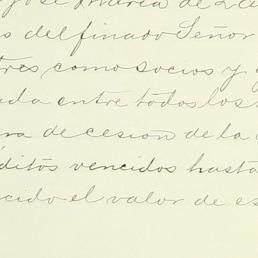 y José María de La
s del finado Señor
tres como socios y
ada entre todos los
ra de cesion de la
ditos vencidos hasta
cido el valor de es